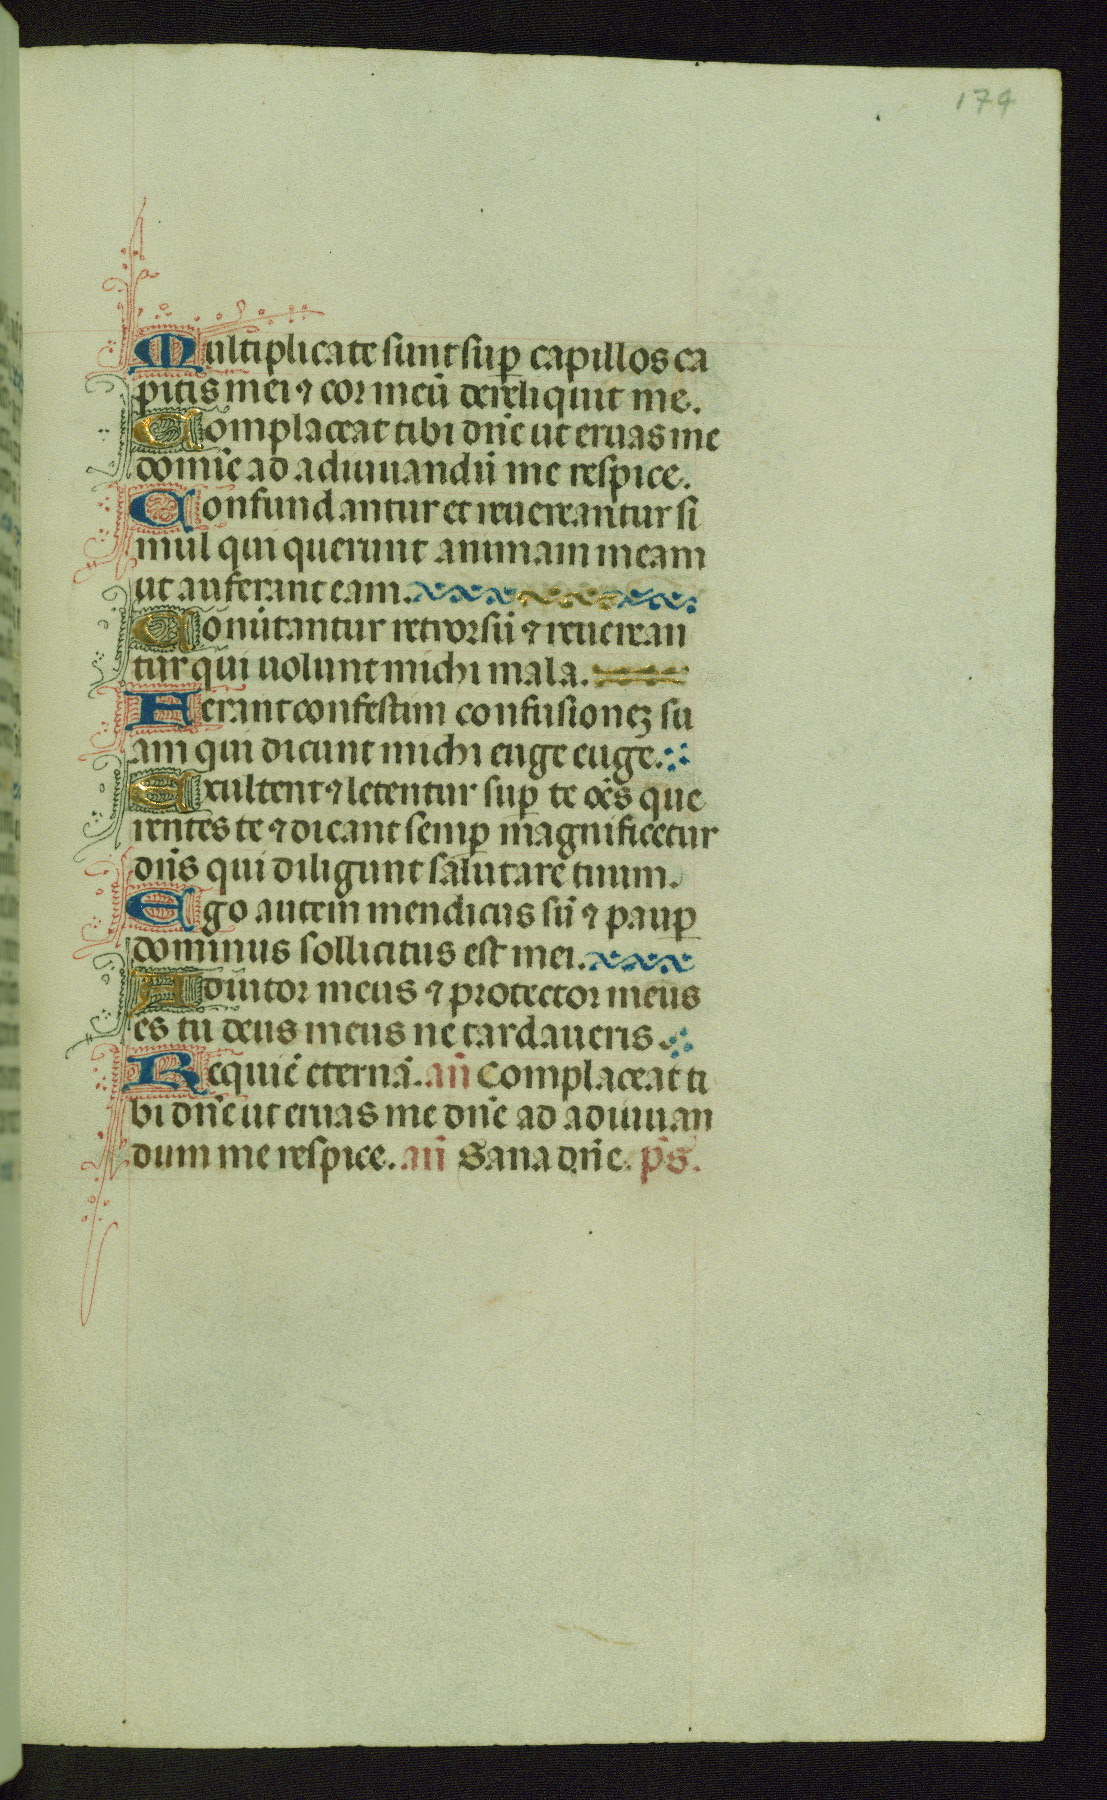 174
Multiplicate sunt sup̱ capillos ca
pitis mei ⁊ cor meū dereliquit me.
Complaceat tibi dn̄e ut eruas me
domīe ad adiuuandū me respice.
Confundantur et reuereantur si
mul qui querunt animam meam
ut auferant eam.
Conūtantur retrorsū ⁊ reuerean
tur qui uolunt michi mala.
Ferant confestim confusionēꝫ su
am qui dicunt michi euge euge.
Exultent ⁊ letentur sup̱ te oēs que
rentes te ⁊ dicant semp̱ magnificetur
dn̄s qui diligunt salutare tuum.
Ego autem mendicus sū ⁊ paup̱
dominus sollicitus est mei.
Adiutor meus ⁊ protector meus
es tu deus meus ne tardaueris.
Requiē eternā. an̄ Complaceat ti
bi dn̄e ut eruas me dn̄e ad adiuuan
dum me respice. an̄ Sana dn̄e. ps̄.